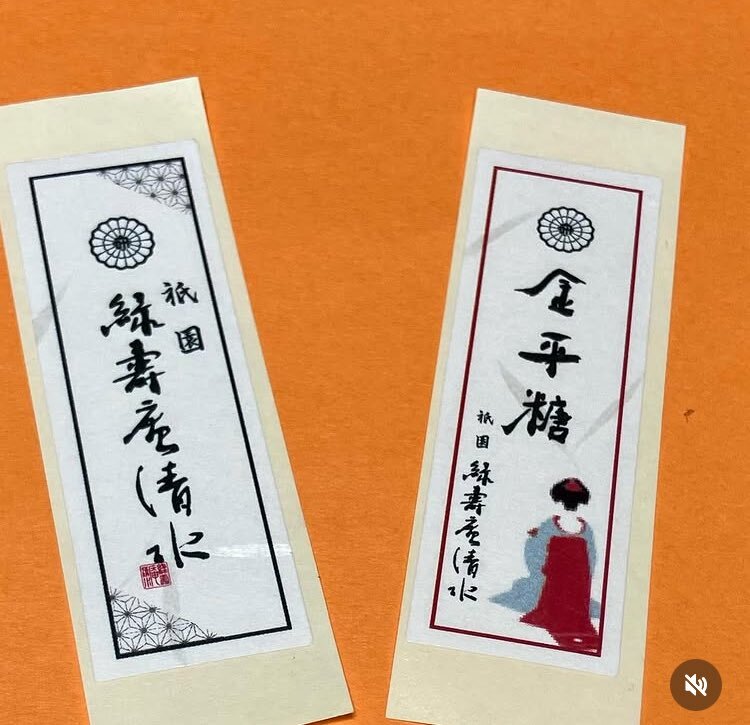 祇園
緑壽庵清水
金平糖
祇園
緑壽庵清水